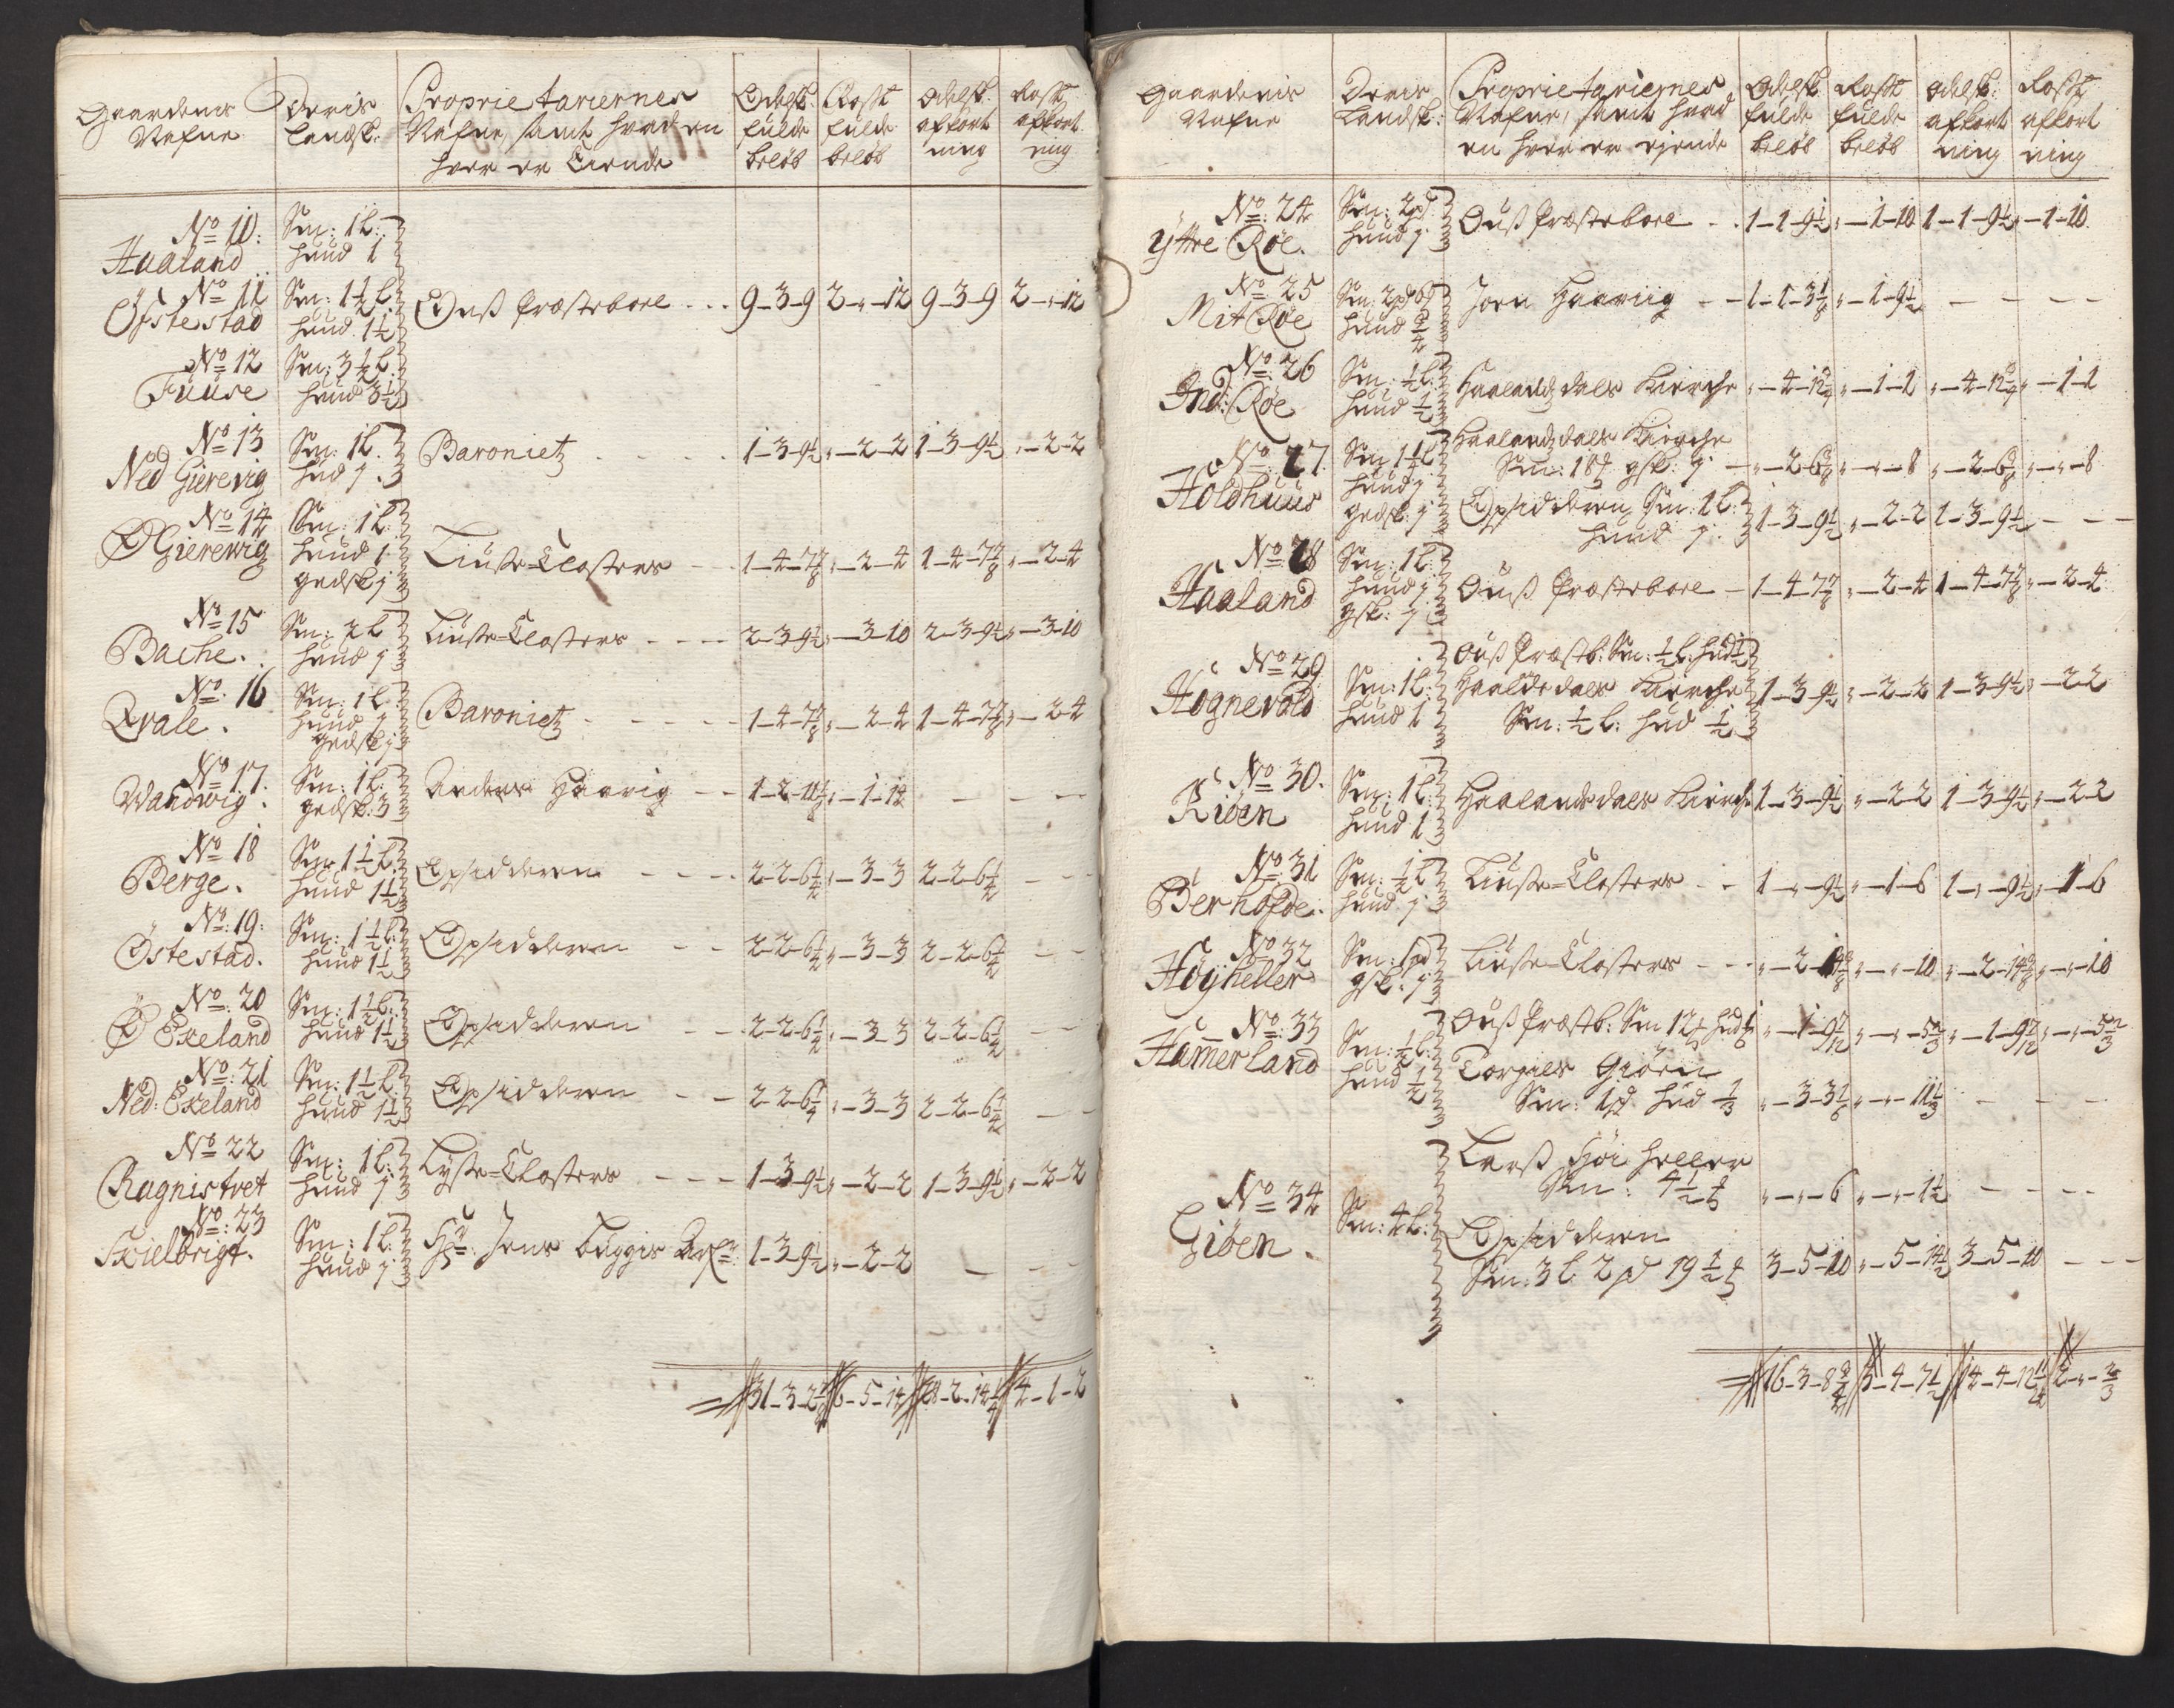 Gaardenis Nafne
Deris Landsk:
Proprietariernes Nafne, samt hvad en hver er Eiende
Odelsk: fulde beløb
Rosst: fulde beløb
Odelsk: afkortning
Rosst: afkortning
No 10: Haaland
Sm: 1 l: hund 1
No 11 Öfstestad
Sm: 1½ l: hund 1½
Ouß Præstebole - - 9-3-9 2-"-12 9-3-9 2-"-12
No 12 Fuuse
Sm: 3½ l: hund 3½
No 13 Ned Gierevig
Sm: 1 l. hud j.
Baroniet - - - 1-3-9½ "-2-2 1-3-9½ "-2-2
No 14 Ø Gierevig
Sm: 1 l: hund 1 gedsk j
Liuße-Closters - - 1-4-7⅞ "-2-4 1-4-7⅞ "-2-4
No 15 Bache.
Sm: 2 l hund j
Liuße-Closters - - - 2-3-9½ "-3-10 2-3-9½ "-3-10
No: 16 Qvale.
Sm: 1 l: hund j gedsk j
Baroniet - - - 1-4-7⅞ "-2-4 1-4-7⅞ "-2-4
No 17. Wandwig.
Sm: 1 l: gedsk: 3
Anders Haavig - - 1-2-11⅝ "-1-14 - - -
No 18 Berge.
Sm 1½ l: hund 1½
Opsidderen - - - 2-2-6¼ "-3-3 2-2-6¼ - -
No: 19: Östestad.
Sm: 1½ l: hund 1½
Opsidderen - - 2-2-6¼ "-3-3 2-2-6¼ - -
No: 20 Ø Exeland
Sm: 1½ l: hund 1½
Opsidderen - - 2-2-6¼ "-3-3 2-2-6¼ - -
No: 21 Ned: Exeland
Sm: 1½ l: hund 1½
Opsidderen - - 2-2-6¼ "-3-3 2-2-6¼ - -
No 22 Ragnistvet
Sm: 1 l: hund j
Lyße-Closters - - - 1-3-9½ "-2-2 1-3-9½ "-2-2
No: 23 Skielbrigt.
Sm: 1 l: hund j
Hr: Jens Buggis Arf: 1-3-9½ "-2-2 - - -
31-3-2⅞ 6-5-14 28-2-14¼ 4-1-2
Gaardenis Nafne
Deris Landsk:
Proprietariernes Nafne, samt hvad en hver er ejende
Odelsk fulde beløb
Rosst fulde beløb
Odelsk: afkortning
Rosst afkortning
No: 24 Ÿttre Røe.
Sm: 2 pd: hund j
Ouß Præstebole - . 1-1-9½ "-1-10 1-1-9½ "-1-10
No 25 Mit Røe
Sm: 2 pd 6 hund ¾
Jorn Haaviig - - 1-1-3⅛ "-1-9½ - - - -
No: 26 Ind: Røe
Sm: ½ l: hund ½
Haalandzdals Kierche "-4-12¾ "-1-1 "-4-12¾ "-1-1
No: 27. Holdhuus
Sm 1¼ l: hund j gedsk: j
Haalandzdals Kirche
Sm: 18 gsk: j - "-2-6⅜ "-"-8 "-2-6⅜ "-"-8
Opsidderen Sm: 1 l: hund j. 1-3-9½ "-2-2 1-3-9½ - - -
No: 28 Haaland
Sm: 1 l: hund j gsk: j
Ouß Præstebole - 1-4-7⅞ "-2-4 1-4-7⅞ "-2-4
No 29 Høgnevald
Sm: 1 l: hund 1
Ouß Præstb: Sm: ½ l: hud ½
Haaldsdals Kierche 1-3-9½ "-2-2 1-3-9½ "-2-2
Sm: ½ l: hud ½
No: 30. Kiöen
Sm: 1 l: hund 1
Haalandsdals Kierche 1-3-9½ "-2-2 1-3-9½ "-2-2
No: 31 Berhofde.
Sm: ½ l hund j
Liuße-Closters - - 1-"-9½ "-1-6 1-"-9½ "-1-6
No 32 Høÿheller
Sm: 1 pd gsk: j
Liuße-Closters - - "-2-14⅜ "-"-10 "-2-14⅜ "-"-10
No: 33 Hamerland
Sm: ½ l: hund ½
Ouß Præstb: Sm 12 hud
Torgies Giöen
Sm: 1 pd hud ⅓ "-3-3⅙ "-"-11⅓ - - -
No 34 Giöen.
Sm: 4 l:
Larß Høi heller
Sm: 4½ "-"-6 "-"-1½ - - - -
Opsidderen
Sm: 3 l 2 pd 19½ 3-5-10 "-5-14½ 3-5-10 - - -
16-3-8¾ 3-4-7½ 14-4-12 2-"-⅔